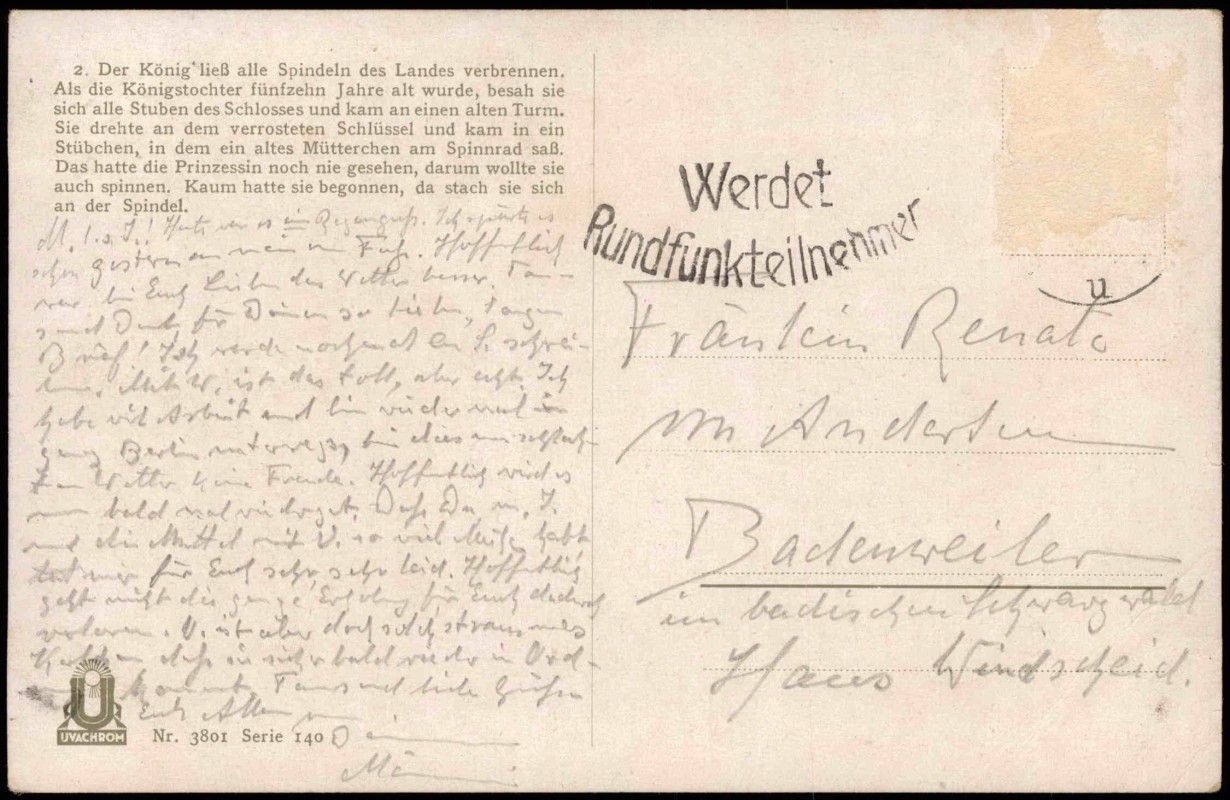 2. Der König ließ alle Spindeln des Landes verbrennen.
Als die Königstochter fünfzehn Jahre alt wurde, besah sie
sich alle Stuben des Schlosses und kam an einen alten Turm.
Sie drehte an dem verrosteten Schlüssel und kam in ein
Stübchen, in dem ein altes Mütterchen am Spinnrad saß.
Das hatte die Prinzessin noch nie gesehen, darum wollte sie
auch spinnen. Kaum hatte sie begonnen, da stach sie sich
an der Spindel.
Heute war es ein Ich spürte es
schon gestern an mein Fuß. Hoffentlich
war bei Euch Lieben das Wetter besser. Tau-
send Dank für Deinen so lieben, langen
Brief! Ich werde nochmal an S. schrei-
ben. Mit W. ist das toll, aber echt. Ich
habe viel Arbeit und bin wieder mal in
ganz Berlin unterwegs, bei diesem schlech-
ten Wetter keine Freude. Hoffentlich wird es
nun bald mal wieder gut. Daß Du u. I.
und die Mutter mit V. so viel Mühe habt,
tut mir für Euch sehr, sehr leid. Hoffentlich
geht nicht die ganze Erholung für Euch dadurch
verloren. V. ist aber doch solch strammes
Kerlchen, daß sie sicher bald wieder in Ord-
Tausend liebe Grüße
Euch Allen von
Dein
Männi
UVACHROM
Nr. 3801 Serie 140
Werdet
Rundfunkteilnehmer
u
Fräulein Renate
von Andersen
Badenweiler
im badischen Schwarzwald
Haus Windscheid.